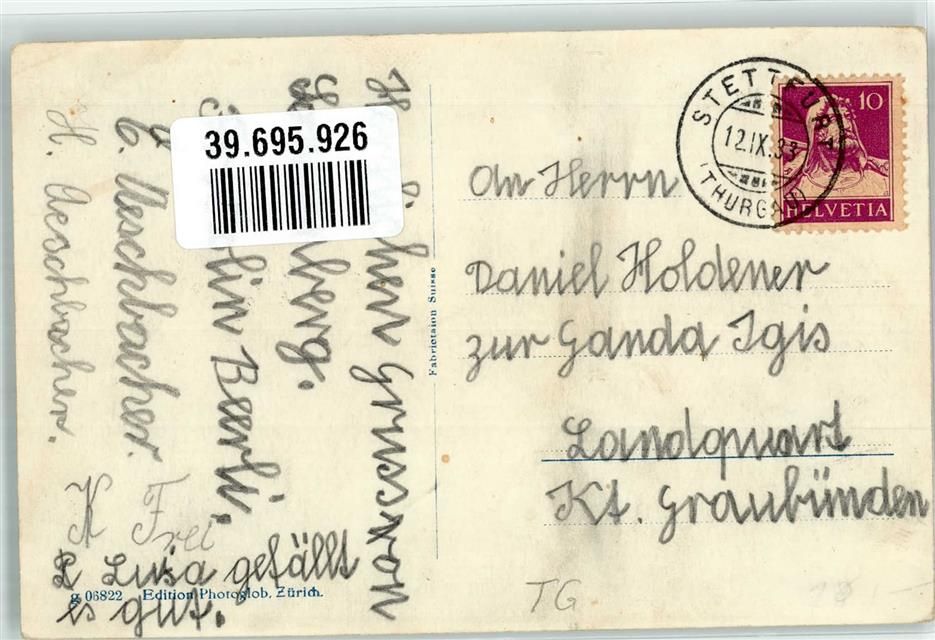 39.695.926
lichen Gruss von
Berg.
Berli.
C. Aeschbacher.
H. Aeschbacher.
K Frei
Luisa gefällt
es gut.
g 06822 Edition Photoglob, Zürich.
Fabrication Suisse
STETTFURT
12.IX.33
(THURGAU)
10
HELVETIA
An Herrn
Daniel Holdener
zur Ganda Igis
Landquart
Kt. Graubünden
TG